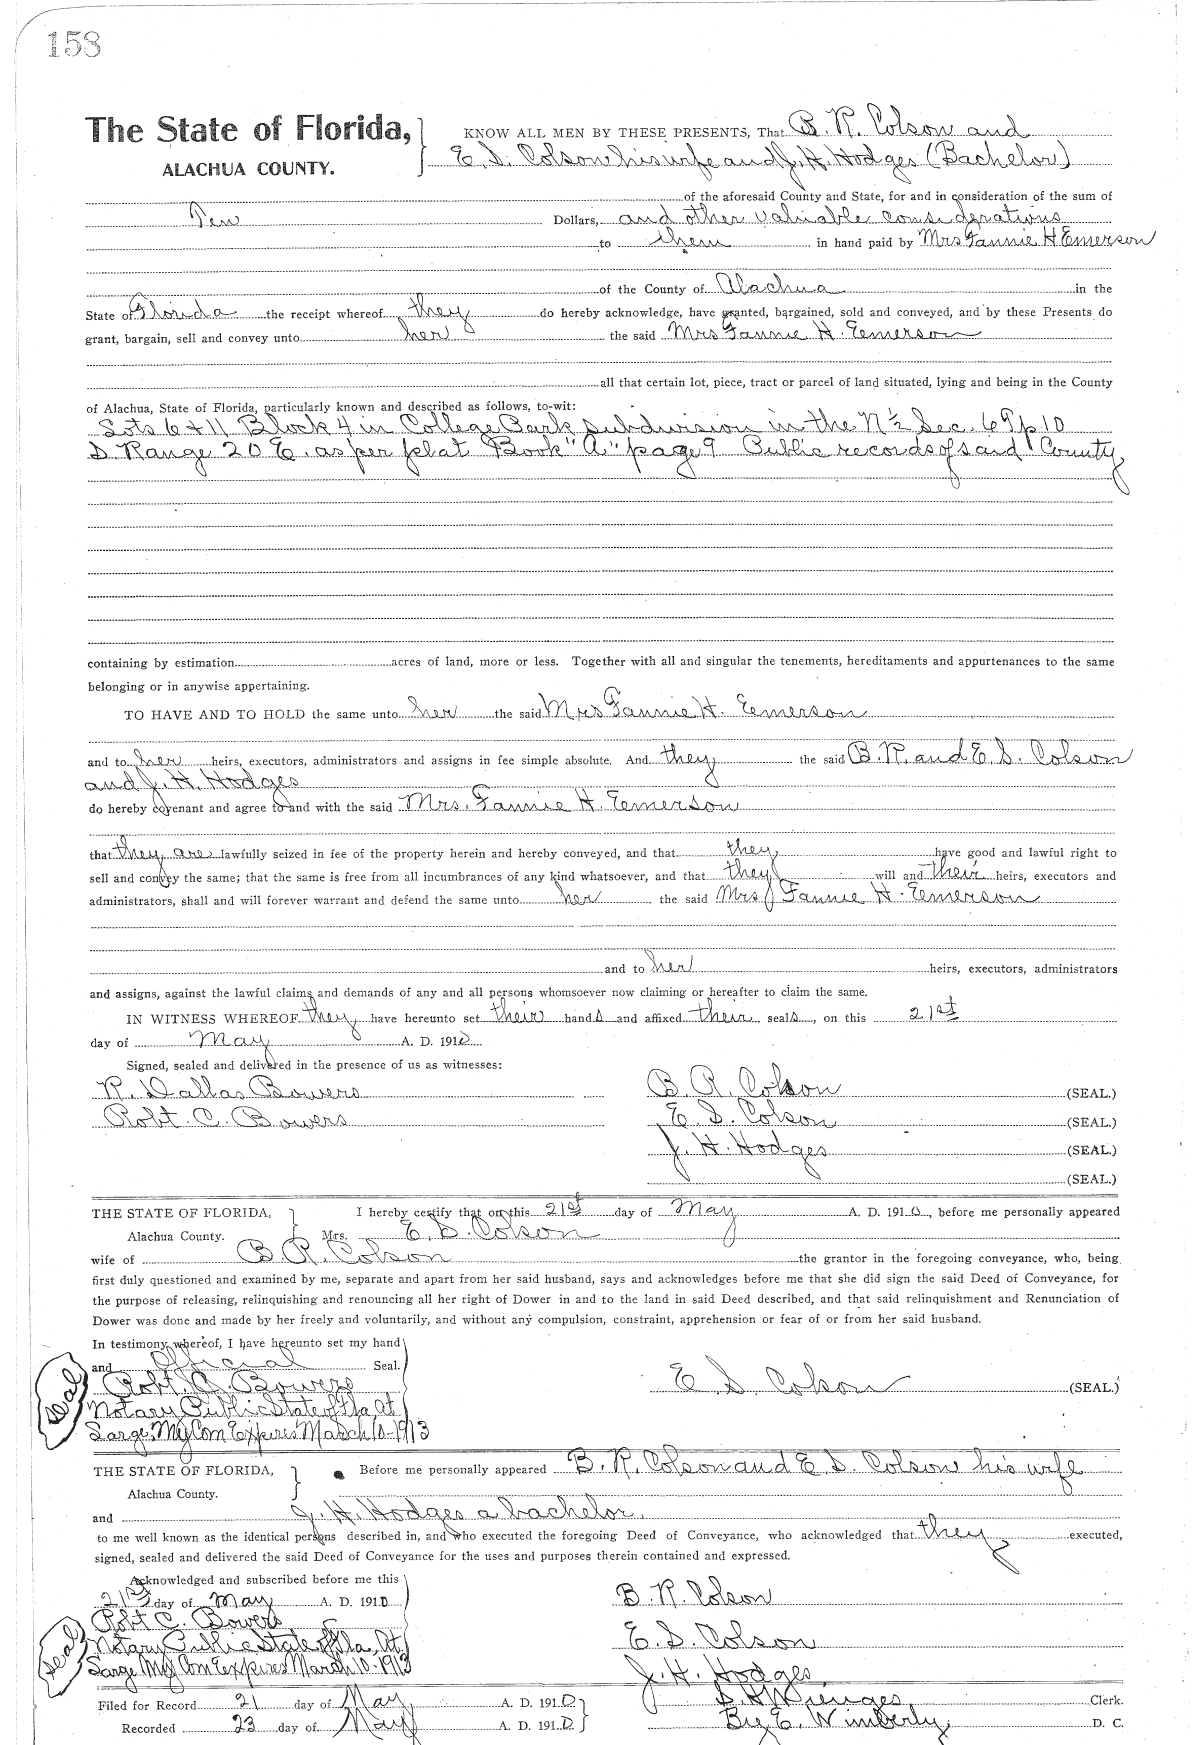 158
The State of Florida,
ALACHUA COUNTY.
KNOW ALL MEN BY THESE PRESENTS, That B. R. Colson and
E. S. Colson his wife and J. H. Hodges (Bachelor)
of the aforesaid County and State, for and in consideration of the sum of
Ten Dollars, and other valuable considerations
to them in hand paid by Mrs Fannie H Emerson
of the County of Alachua in the
State of Florida the receipt whereof they do hereby acknowledge, have granted, bargained, sold and conveyed, and by these Presents do
grant, bargain, sell and convey unto her the said Mrs Fannie H. Eemerson
all that certain lot, piece, tract or parcel of land situated, lying and being in the County
of Alachua, State of Florida, particularly known and described as follows, to-wit:
Lots 6 & 11 Block 4 in College Park subdivision in the N ½ Sec. 6 Tp 10
S Range 20 E. as per plat Book "A" page 9 Public records of said County
containing by estimation acres of land, more or less. Together with all and singular the tenements, hereditaments and appurtenances to the same
belonging or in anywise appertaining.
TO HAVE AND TO HOLD the same unto her the said Mrs Fannie H. Eemerson
and to her heirs, executors, administrators and assigns in fee simple absolute. And they the said B. R. and E. S. Colson
and J. H. Hodges
do hereby covenant and agree to and with the said Mrs. Fannie H. Eemerson
that they are lawfully seized in fee of the property herein and hereby conveyed, and that they have good and lawful right to
sell and convey the same; that the same is free from all incumbrances of any kind whatsoever, and that they will and their heirs, executors and
administrators, shall and will forever warrant and defend the same unto her the said Mrs Fannie H. Eemerson
and to her heirs, executors, administrators
and assigns, against the lawful claims and demands of any and all persons whomsoever now claiming or hereafter to claim the same.
IN WITNESS WHEREOF they have hereunto set their hands and affixed their seals, on this 21st
day of May A. D. 1910
Signed, sealed and delivered in the presence of us as witnesses:
R. Dallas Bowers B. R. Colson (SEAL.)
Robt. C. Bowers E. S. Colson (SEAL.)
J. H. Hodges (SEAL.)
(SEAL.)
THE STATE OF FLORIDA, I hereby certify that on this 21st day of May A. D. 1910, before me personally appeared
Alachua County. Mrs. E. S. Colson
wife of B. R. Colson the grantor in the foregoing conveyance, who, being
first duly questioned and examined by me, separate and apart from her said husband, says and acknowledges before me that she did sign the said Deed of Conveyance, for
the purpose of releasing, relinquishing and renouncing all her right of Dower in and to the land in said Deed described, and that said relinquishment and Renunciation of
Dower was done and made by her freely and voluntarily, and without any compulsion, constraint, apprehension or fear of or from her said husband.
In testimony whereof, I have hereunto set my hand
and official Seal.
Seal Robt. C. Bowers E. S. Colson (SEAL.)
Notary Public State of Fla. At
Large. My Com Expires March 10-1913
THE STATE OF FLORIDA, Before me personally appeared B. R. Colson and E S. Colson his wife
Alachua County.
and J. H. Hodges a bachelor.
to me well known as the identical persons described in, and who executed the foregoing Deed of Conveyance, who acknowledged that they executed,
signed, sealed and delivered the said Deed of Conveyance for the uses and purposes therein contained and expressed.
Acknowledged and subscribed before me this
21st day of May A. D. 1910 B. R. Colson
Robt C. Bowers
Seal Notary Public State of Fla. At E. S. Colson
Large My Com Eexpires March 10-1913 J. H. Hodges
Filed for Record 21 day of May A. D. 1910 S. H. Wienges Clerk.
Recorded 23 day of May A. D. 1910 By E. Wimberly D. C.